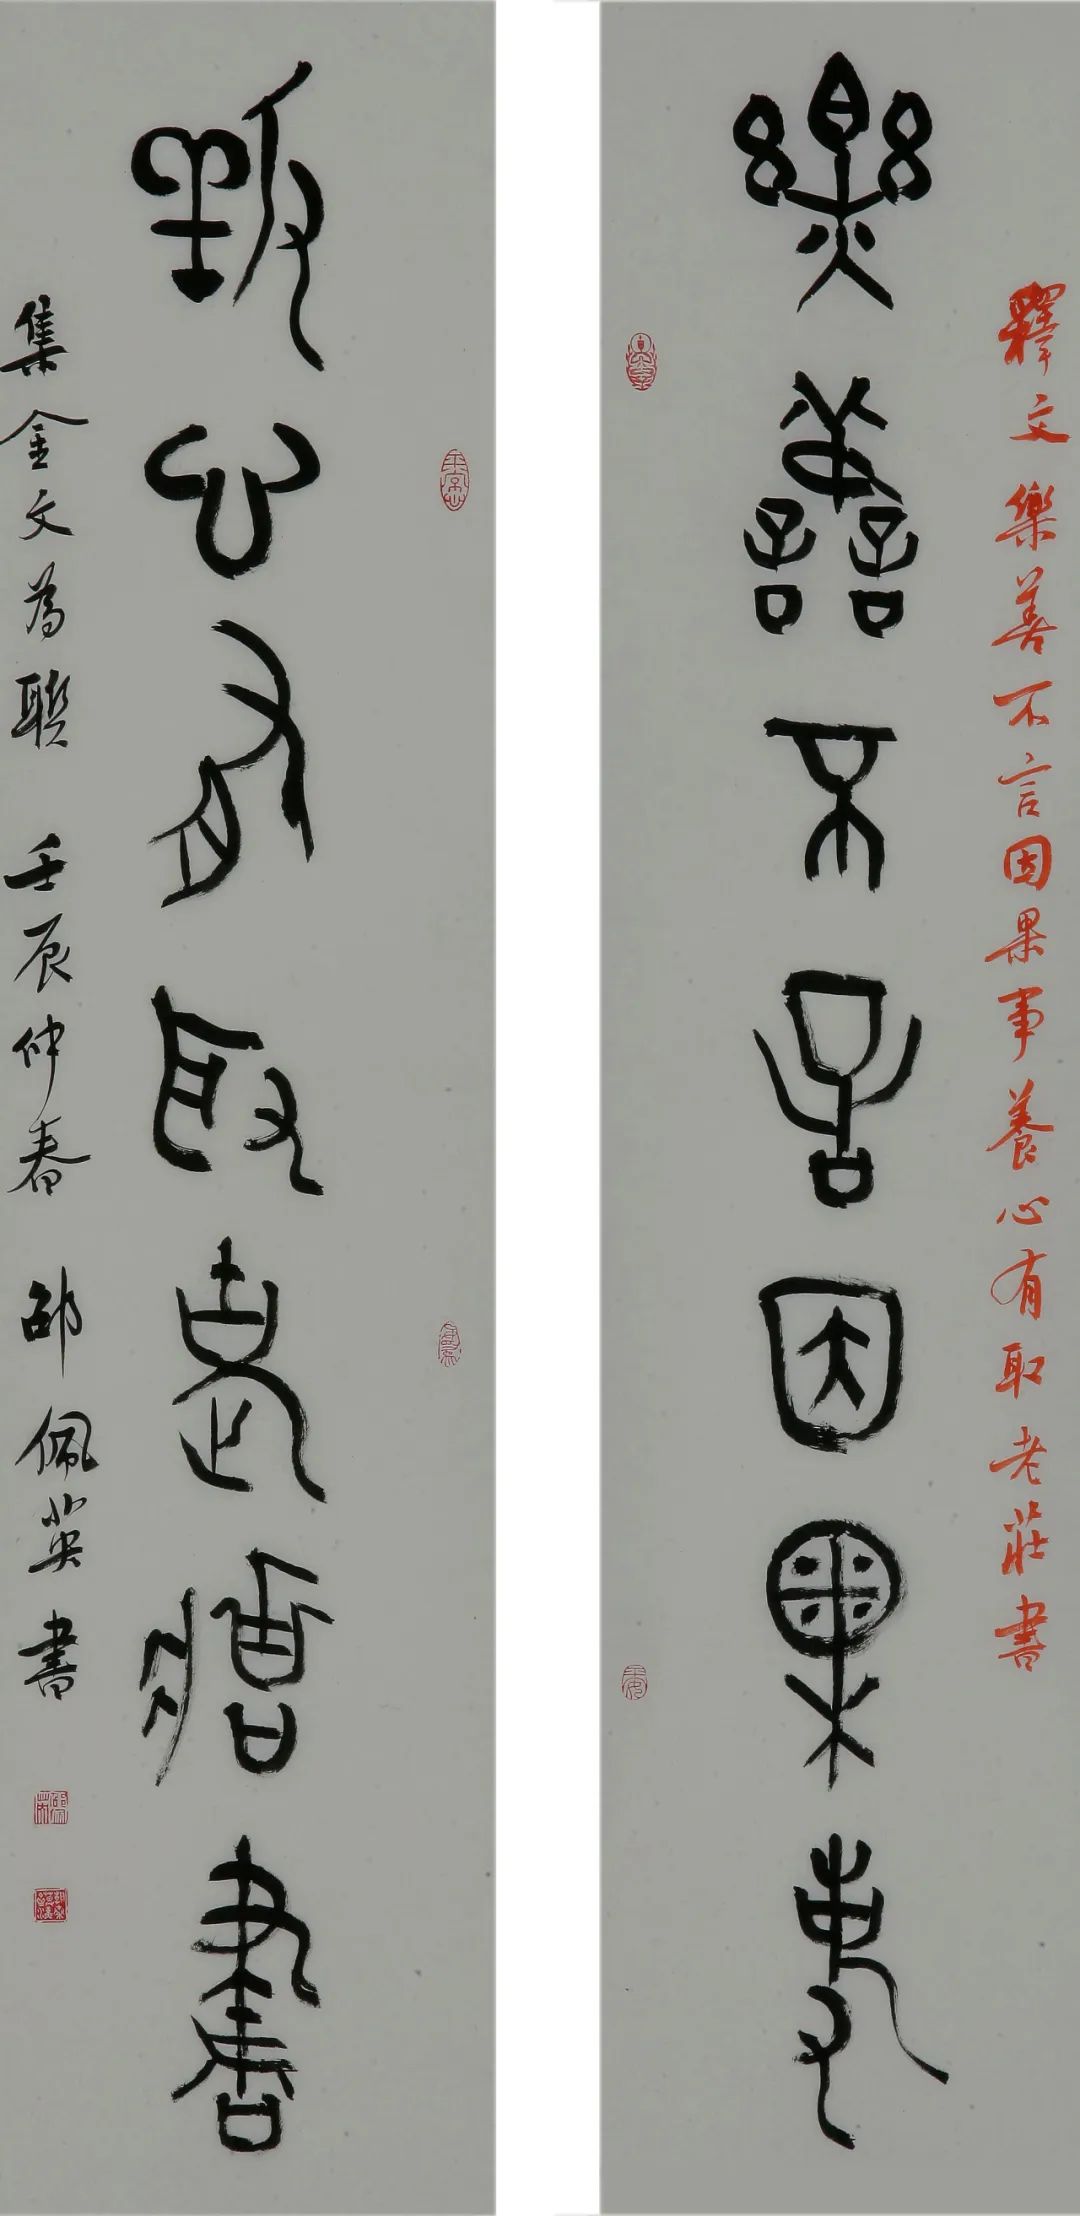 釋文 樂善不言因果事養心有取老莊書
樂善不言因果事
養心有取老莊書
集金文為聯 壬辰仲春 邵佩英書